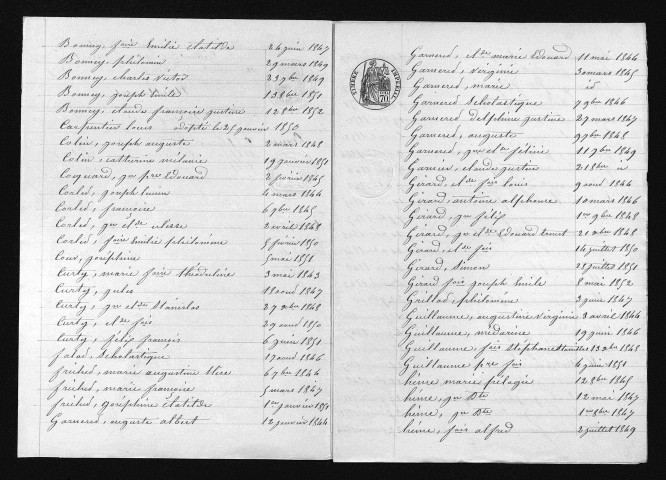 Bonney, foise Emilie clotilde 24 juin 1847
Bonney, philomin 29 mars 1849
Bonney, charles victor 23 9bre 1849
Bonney, joseph Emile 13 8bre 1850
Bonney, claude françoise justine 12 8bre 1852
Carpentier louis adopté le 25 janvier 1850
Colin, joseph auguste 2 mars 1848
Colin, catherine mélanie 19 janvier 1851
Coquard, gn pre Edouard 2 février 1845
Corled, joseph 4 mars 1846
Corled, françoise 6 9bre 1845
Corled, gn et de ulisse 2 avril 1848
Corled, foise Emilie philomène 5 février 1850
Cour, joséphine 5 mai 1851
Curty, marie foise théduline 3 mai 1843
Curty, jules 18 aout 1847
Curty, gn et de Stanislas 27 xbre 1848
Curty, et de fois 29 aout 1850
Curty, félix françois 6 juin 1851
Scholastique 17 aout 1846
marie augustine 6 7bre 1844
marie françoise 5 mars 1847
joséphine clotilde 1er janvier 1851
Garnered, auguste albert 12 janvier 1844
TIMBRE IMPERIAL
Garnered, et de marie Edouard 11 mai 1844
Garnered, virginie 30 mars 1845
Garnered, marie id
Garnered Scholastique 7 9bre 1846
Garnered delphine justine 27 mars 1847
Garnered, auguste 9 9bre 1848
Garnered, gn et de félicie 11 9bre 1849
Garnier, claude justin 21 8bre id
Girard, et de fois louis 9 aout 1846
Girard, antoine alphonse 10 mars 1846
Girard, gn félix 1er 9bre 1848
Girard, gn et de Edouard 21 xbre 1848
Girard, et de fois 14 juillet 1850
Girard, Simon 28 juillet 1851
Girard fois joseph Emile 8 mai 1852
Grillod, philomène 3 1847
Guillaume, augustine virginie 3 avril 1844
Guillaume, médarine 19 juin 1846
Guillaume, fois Stéphane 13 xbre 1848
Guillaume pre fois 4 juin 1851
héme marie pélagie 12 8bre 1845
héme, gn Bte 12 mai 1847
héme, gn Bte 1er 8bre 1847
héme, fois alfred 2 juillet 1849